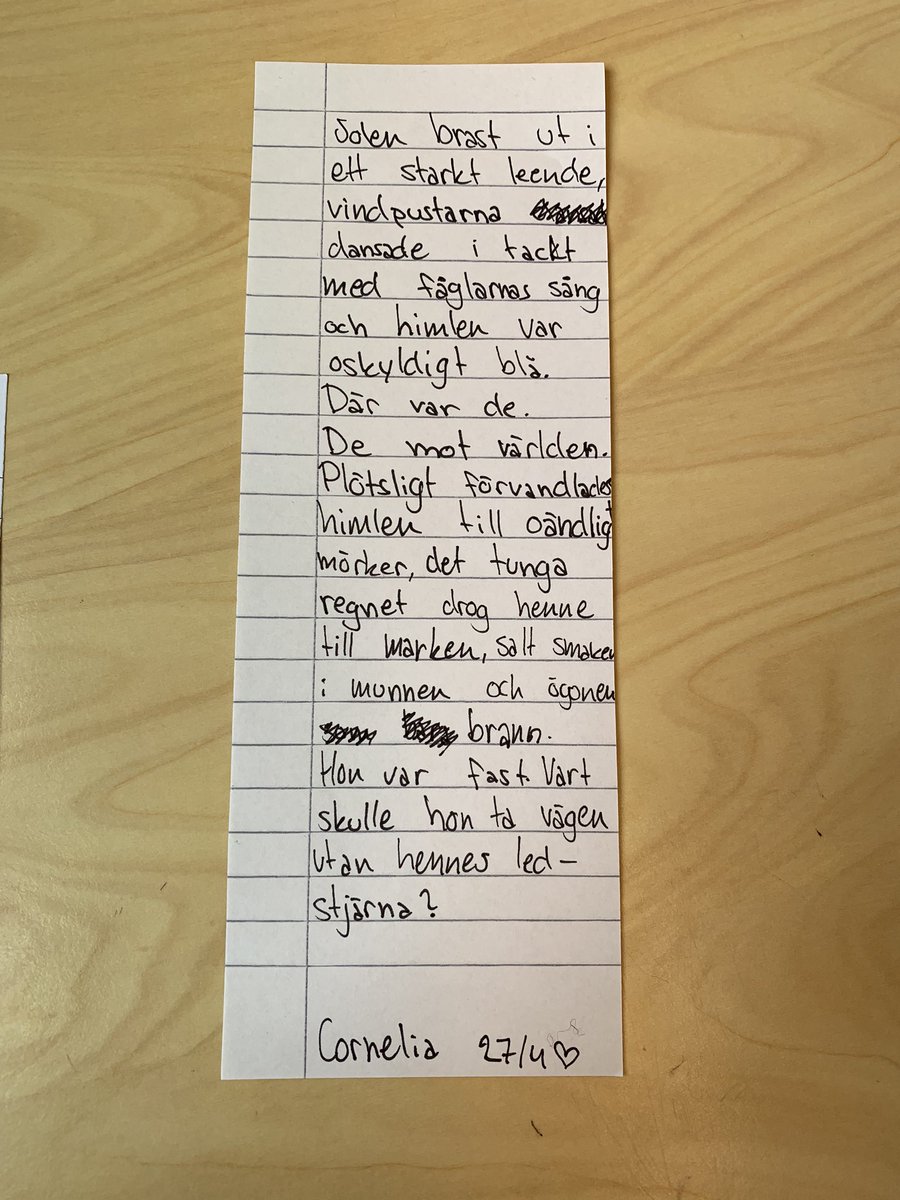 Solen brast ut i
ett starkt leende,
vindpustarna
dansade i tackt
med fåglarnas sång
och himlen var
oskyldigt blå.
Där var de.
De mot världen.
Plötsligt förvandlades
himlen till oändligt
mörker, det tunga
regnet drog henne
till marken, salt smaken
i munnen och ögonen
brann.
Hon var fast. Vart
skulle hon ta vägen
utan hennes led-
stjärna?
Cornelia 27/4 ♡